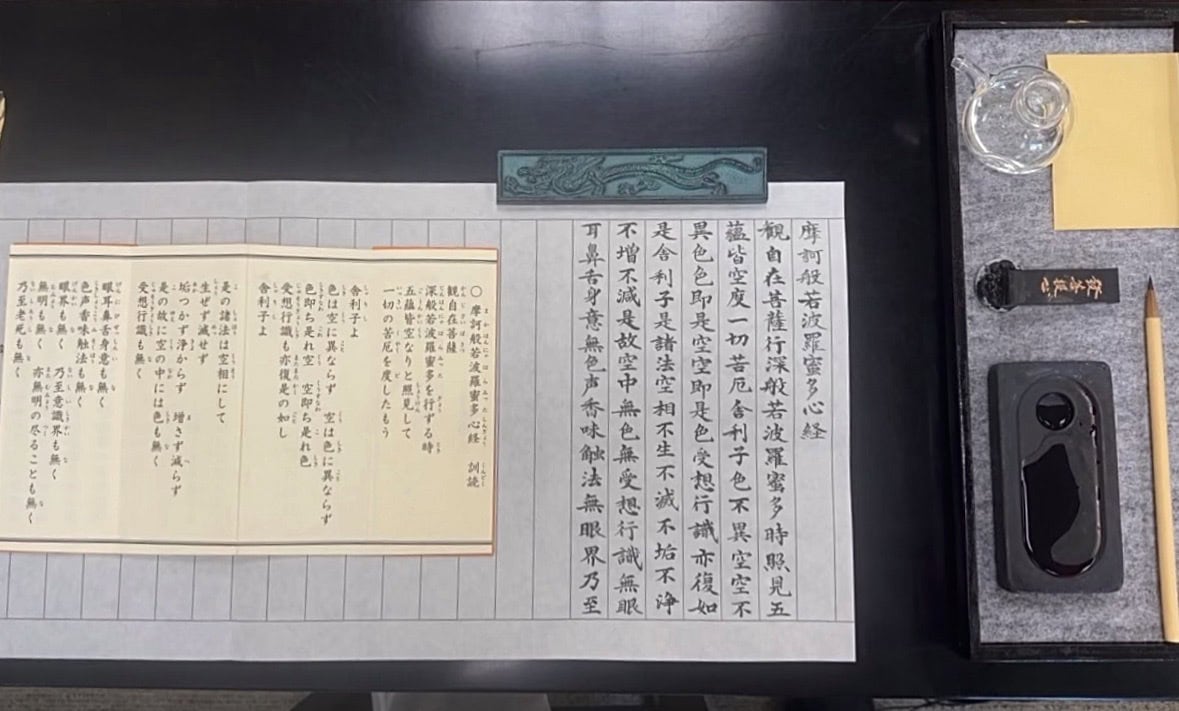 摩訶般若波羅蜜多心経
観自在菩薩行深般若波羅蜜多時照見五
蘊皆空度一切苦厄舎利子色不異空空不
異色色即是空空即是色受想行識亦復如
是舎利子是諸法空相不生不滅不垢不浄
不増不減是故空中無色無受想行識無眼
耳鼻舌身意無色声香味触法無眼界乃至
〇 摩訶般若波羅蜜多心経 訓読
観自在菩薩
深般若波羅蜜多を行ずる時
五蘊皆空なりと照見して
一切の苦厄を度したもう
舎利子よ
色は空に異ならず 空は色に異ならず
色即ち是れ空 空即ち是れ色
受想行識も亦復是の如し
舎利子よ
是の諸法は空相にして
生ぜず滅せず
垢つかず浄からず 増さず減らず
是の故に空の中には色も無く
受想行識も無く
眼耳鼻舌身意も無く
色声香味触法も無く
眼界も無く 乃至意識界も無く
無明も無く 亦無明の尽ることも無く
乃至老死も無く